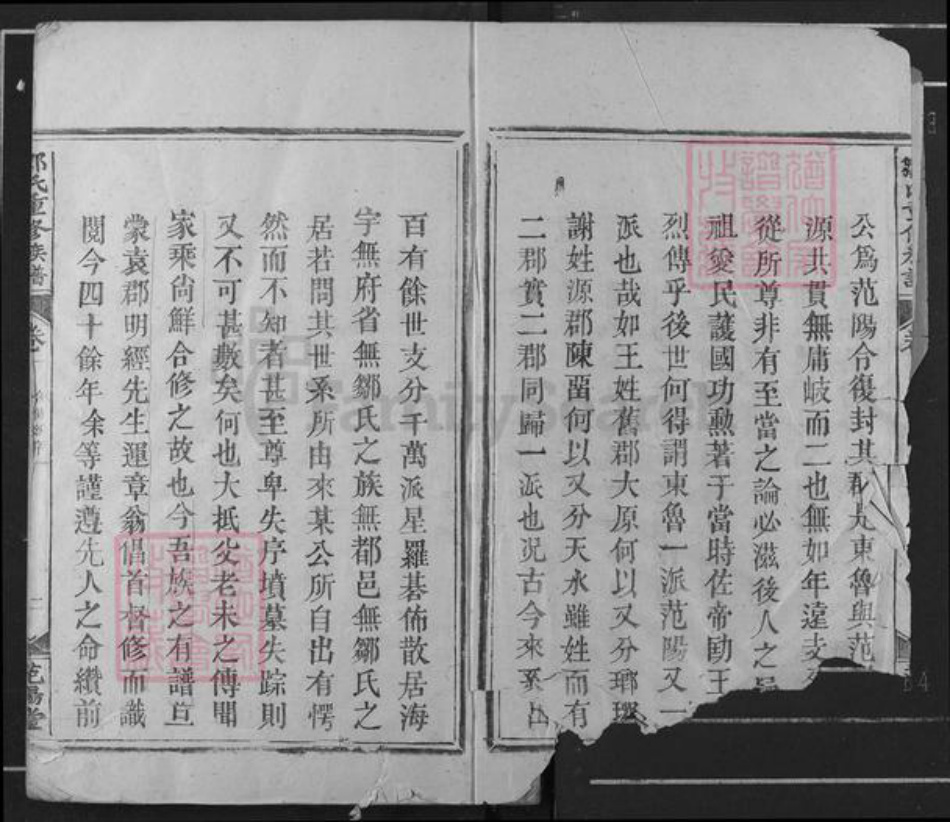 公爲范陽令復封其郡夫東魯與范
源共貫無庸岐而二也無如年遠支
從所尊非有至當之論必滋後人之
祖夋民護國功勲著于當時佐帝助王
烈傳乎後世何得謂東魯一派范陽又一
派也哉如王姓舊郡大原何以又分瑯琊
謝姓源郡陳留何以又分天水雖姓而有
二郡實二郡同歸一派也况古今來系
百有餘世支分千萬派星羅碁佈散居海
宇無府省無鄒氏之族無都邑無鄒氏之
居若問其世系所由來某公所自出有愕
然而不知者甚至尊卑失序墳墓失踪則
又不可甚數矣何也大抵父老未之傳聞
家乘尙鮮合修之故也今吾族之有譜亘
蒙袁郡明經先生運章翁倡首督修而識
閱今四十餘年余等謹遵先人之命纘前
鄒氏重修族譜
卷
二
范陽堂
FamilySearch